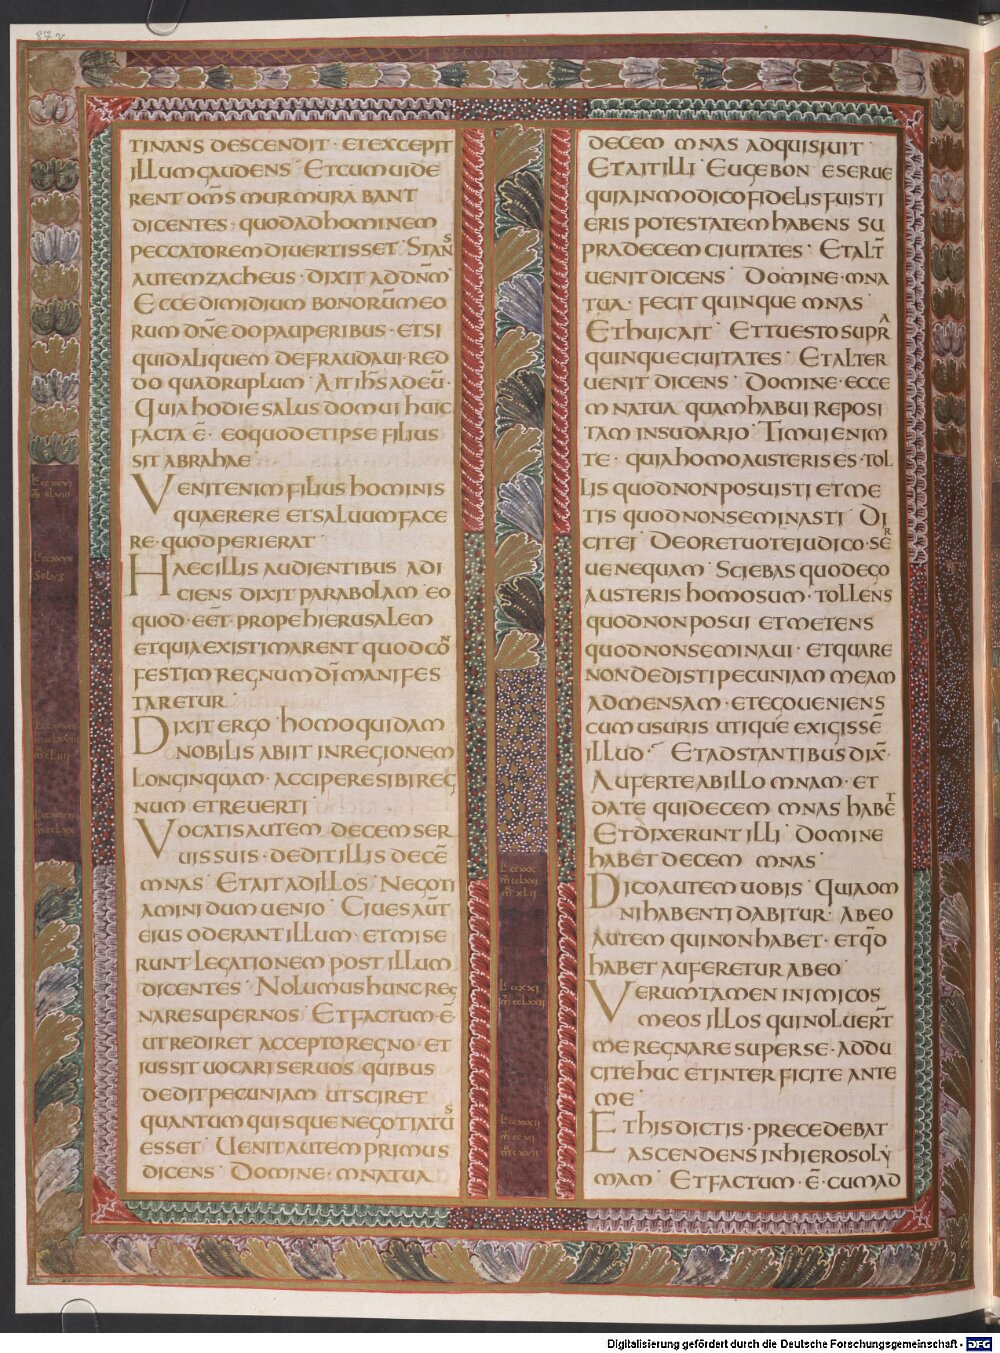 87 v
TINANS DESCENDIT · ET EXCEPIT
ILLUM GAUDENS · ET CUM UIDE
RENT OMS MURMURABANT
DICENTES · QUOD AD HOMINEM
PECCATOREM DIUERTISSET · STANS
AUTEM ZACHEUS · DIXIT AD DNM
ECCE DIMIDIUM BONORUM MEO
RUM DNE DO PAUPERIBUS · ET SI
QUID ALIQUEM DEFRAUDAUI · RED
DO QUADRUPLUM · AIT IHS AD EU ·
QUIA HODIE SALUS DOMUI HUIC
FACTA E · EO QUOD ET IPSE FILIUS
SIT ABRAHAE
VENIT ENIM FILIUS HOMINIS
QUAERERE ET SALUUM FACE
RE · QUOD PERIERAT
HAEC ILLIS AUDIENTIBUS ADI
CIENS DIXIT PARABOLAM EO
QUOD · EET · PROPE HIERUSALEM
ET QUIA EXISTIMARENT QUOD CON
FESTIM REGNUM DI MANIFES
TARETUR
DIXIT ERGO · HOMO QUIDAM
NOBILIS ABIIT IN REGIONEM
LONGINQUAM · ACCIPERE SIBI REG
NUM ET REUERTI
VOCATIS AUTEM DECEM SER
UIS SUIS · DEDIT ILLIS DECE
MNAS · ET AIT AD ILLOS · NEGOTI
AMINI DUM UENIO · CIUES AUT
EIUS ODERANT ILLUM · ET MISE
RUNT LEGATIONEM POST ILLUM
DICENTES · NOLUMUS HUNC REG
NARE SUPER NOS · ET FACTUM · E ·
UT REDIRET ACCEPTO REGNO · ET
IUSSIT UOCARI SERUOS · QUIBUS
DEDIT PECUNIAM UT SCIRET
QUANTUM QUISQUE NEGOTIATUS
ESSET · UENIT AUTEM PRIMUS
DICENS · DOMINE · MNA TUA
DECEM MNAS ADQUISIUIT
ET AIT ILLI · EUGE BONE SERUE
QUIA IN MODICO FIDELIS FUISTI
ERIS POTESTATEM HABENS SU
PRA DECEM CIUITATES · ET ALT
UENIT DICENS · DOMINE · MNA
TUA · FECIT QUINQUE MNAS
ET HUIC AIT · ET TU ESTO SUPRA
QUINQUE CIUITATES · ET ALTER
UENIT DICENS · DOMINE · ECCE
MNA TUA QUAM HABUI REPOSI
TAM IN SUDARIO · TIMUI ENIM
TE · QUIA HOMO AUSTERIS ES · TOL
LIS QUOD NON POSUISTI ET ME
TIS QUOD NON SEMINASTI · DI
CIT EI · DE ORE TUO TE IUDICO · SER
UE NEQUAM · SCIEBAS QUOD EGO
AUSTERIS HOMO SUM · TOLLENS
QUOD NON POSUI ET METENS
QUOD NON SEMINAUI · ET QUARE
NON DEDISTI PECUNIAM MEAM
AD MENSAM · ET EGO UENIENS
CUM USURIS UTIQUE EXIGISSE
ILLUD · ET ADSTANTIBUS DIX ·
AUFERTE AB ILLO MNAM · ET
DATE QUI DECEM MNAS HABET
ET DIXERUNT ILLI · DOMINE
HABET DECEM MNAS
DICO AUTEM UOBIS · QUIA OM
NI HABENTI DABITUR · AB EO
AUTEM QUI NON HABET · ET QD
HABET AUFERETUR AB EO
VERUMTAMEN INIMICOS
MEOS ILLOS QUI NOLUERT
ME REGNARE SUPER SE · ADDU
CITE HUC ET INTERFICITE ANTE
ME
ET HIS DICTIS · PRECEDEBAT
ASCENDENS IN HIEROSOLY
MAM · ET FACTUM · E · CUM AD
Digitalisierung gefördert durch die Deutsche Forschungsgemeinschaft - DFG